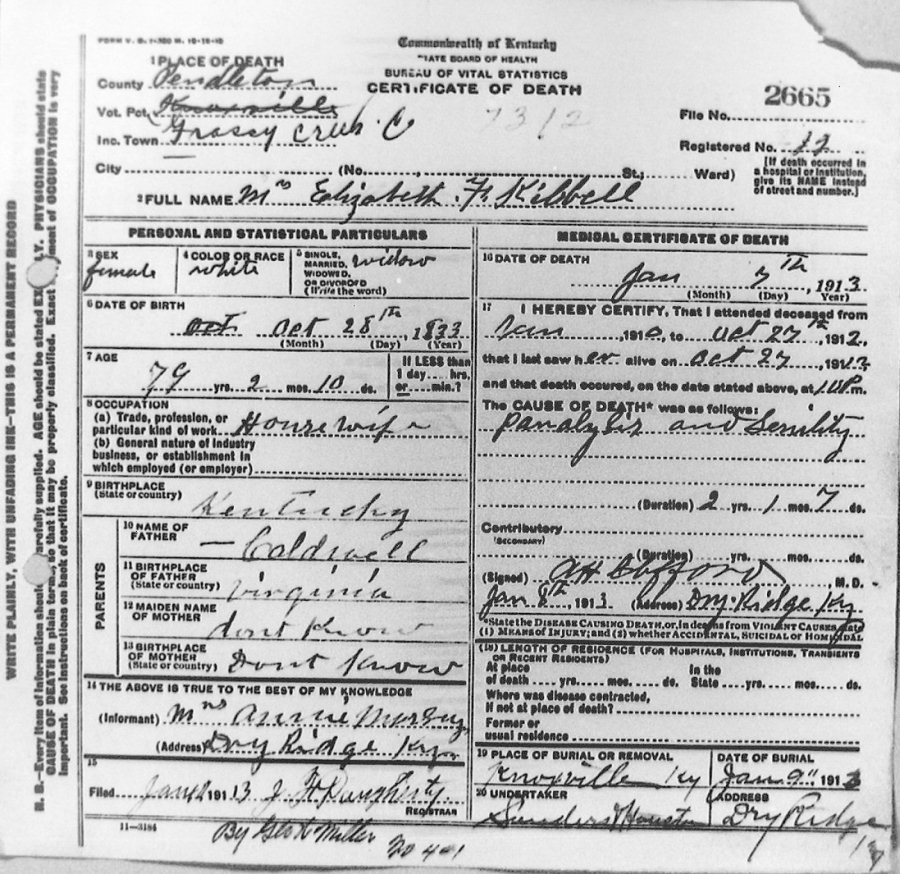 Commonwealth of Kentucky
STATE BOARD OF HEALTH
BUREAU OF VITAL STATISTICS
CERTIFICATE OF DEATH
1 PLACE OF DEATH
County Pendleton
Vot. Pct. Knoxville
Inc. Town Grassy Creek
7312
2665
File No.
Registered No. 12
City (No. , St.; Ward)
[If death occurred in a hospital or institution, give its NAME instead of street and number.]
2 FULL NAME Mrs Elizabeth F. Kibbell
PERSONAL AND STATISTICAL PARTICULARS
3 SEX female
4 COLOR OR RACE white
5 SINGLE, MARRIED, WIDOWED, OR DIVORCED (Write the word) widow
6 DATE OF BIRTH
Oct Oct 28th, 1833
(Month) (Day) (Year)
7 AGE
79 yrs. 2 mos. 10 ds.
If LESS than 1 day.... hrs. or.... min.?
8 OCCUPATION
(a) Trade, profession, or particular kind of work Housewife
(b) General nature of industry business, or establishment in which employed (or employer)
9 BIRTHPLACE
(State or country) Kentucky
PARENTS
10 NAME OF FATHER — Caldwell
11 BIRTHPLACE OF FATHER (State or country) Virginia
12 MAIDEN NAME OF MOTHER dont Know
13 BIRTHPLACE OF MOTHER (State or country) Dont Know
14 THE ABOVE IS TRUE TO THE BEST OF MY KNOWLEDGE
(Informant) Mrs Annie
(Address) Dry Ridge Ky
15
Filed Jan 1913 REGISTRAR
11-3184
By Geo Miller
MEDICAL CERTIFICATE OF DEATH
16 DATE OF DEATH
Jan 7th, 1913
(Month) (Day) Year)
17 I HEREBY CERTIFY, That I attended deceased from
Jan 1910, to Oct 27th 1912,
that I last saw her alive on Oct 27, 1912,
and that death occured, on the date stated above, at m.
The CAUSE OF DEATH* was as follows:
Paralysis and Senility
(Duration) 2 yrs. 1 mos. 7 ds.
Contributory
(SECONDARY)
(Duration) yrs. mos. ds.
(Signed) AH Clifford, M.D.
Jan 8th, 1913 (Address) Dry Ridge Ky
*State the DISEASE CAUSING DEATH, or, in deaths from VIOLENT CAUSES, state (1) MEANS OF INJURY; and (2) whether ACCIDENTAL, SUICIDAL OR HOMICIDAL
(18) LENGTH OF RESIDENCE (FOR HOSPITALS, INSTITUTIONS, TRANSIENTS OR RECENT RESIDENTS)
At place of death .... yrs. .... mos. .... ds. In the State .... yrs. .... mos. .... ds.
Where was disease contracted, If not at place of death?
Former or usual residence
19 PLACE OF BURIAL OR REMOVAL
Knoxville Ky
DATE OF BURIAL
Jan 9th 1913
20 UNDERTAKER
Sanders & Houston
ADDRESS
Dry Ridge
WRITE PLAINLY, WITH UNFADING INK—THIS IS A PERMANENT RECORD
N. B.—Every item of information should carefully supplied. AGE should be stated PHYSICIANS should state
CAUSE OF DEATH in plain terms, so that it may be properly classified. Exact of OCCUPATION is very
important. See instructions on back of certificate.